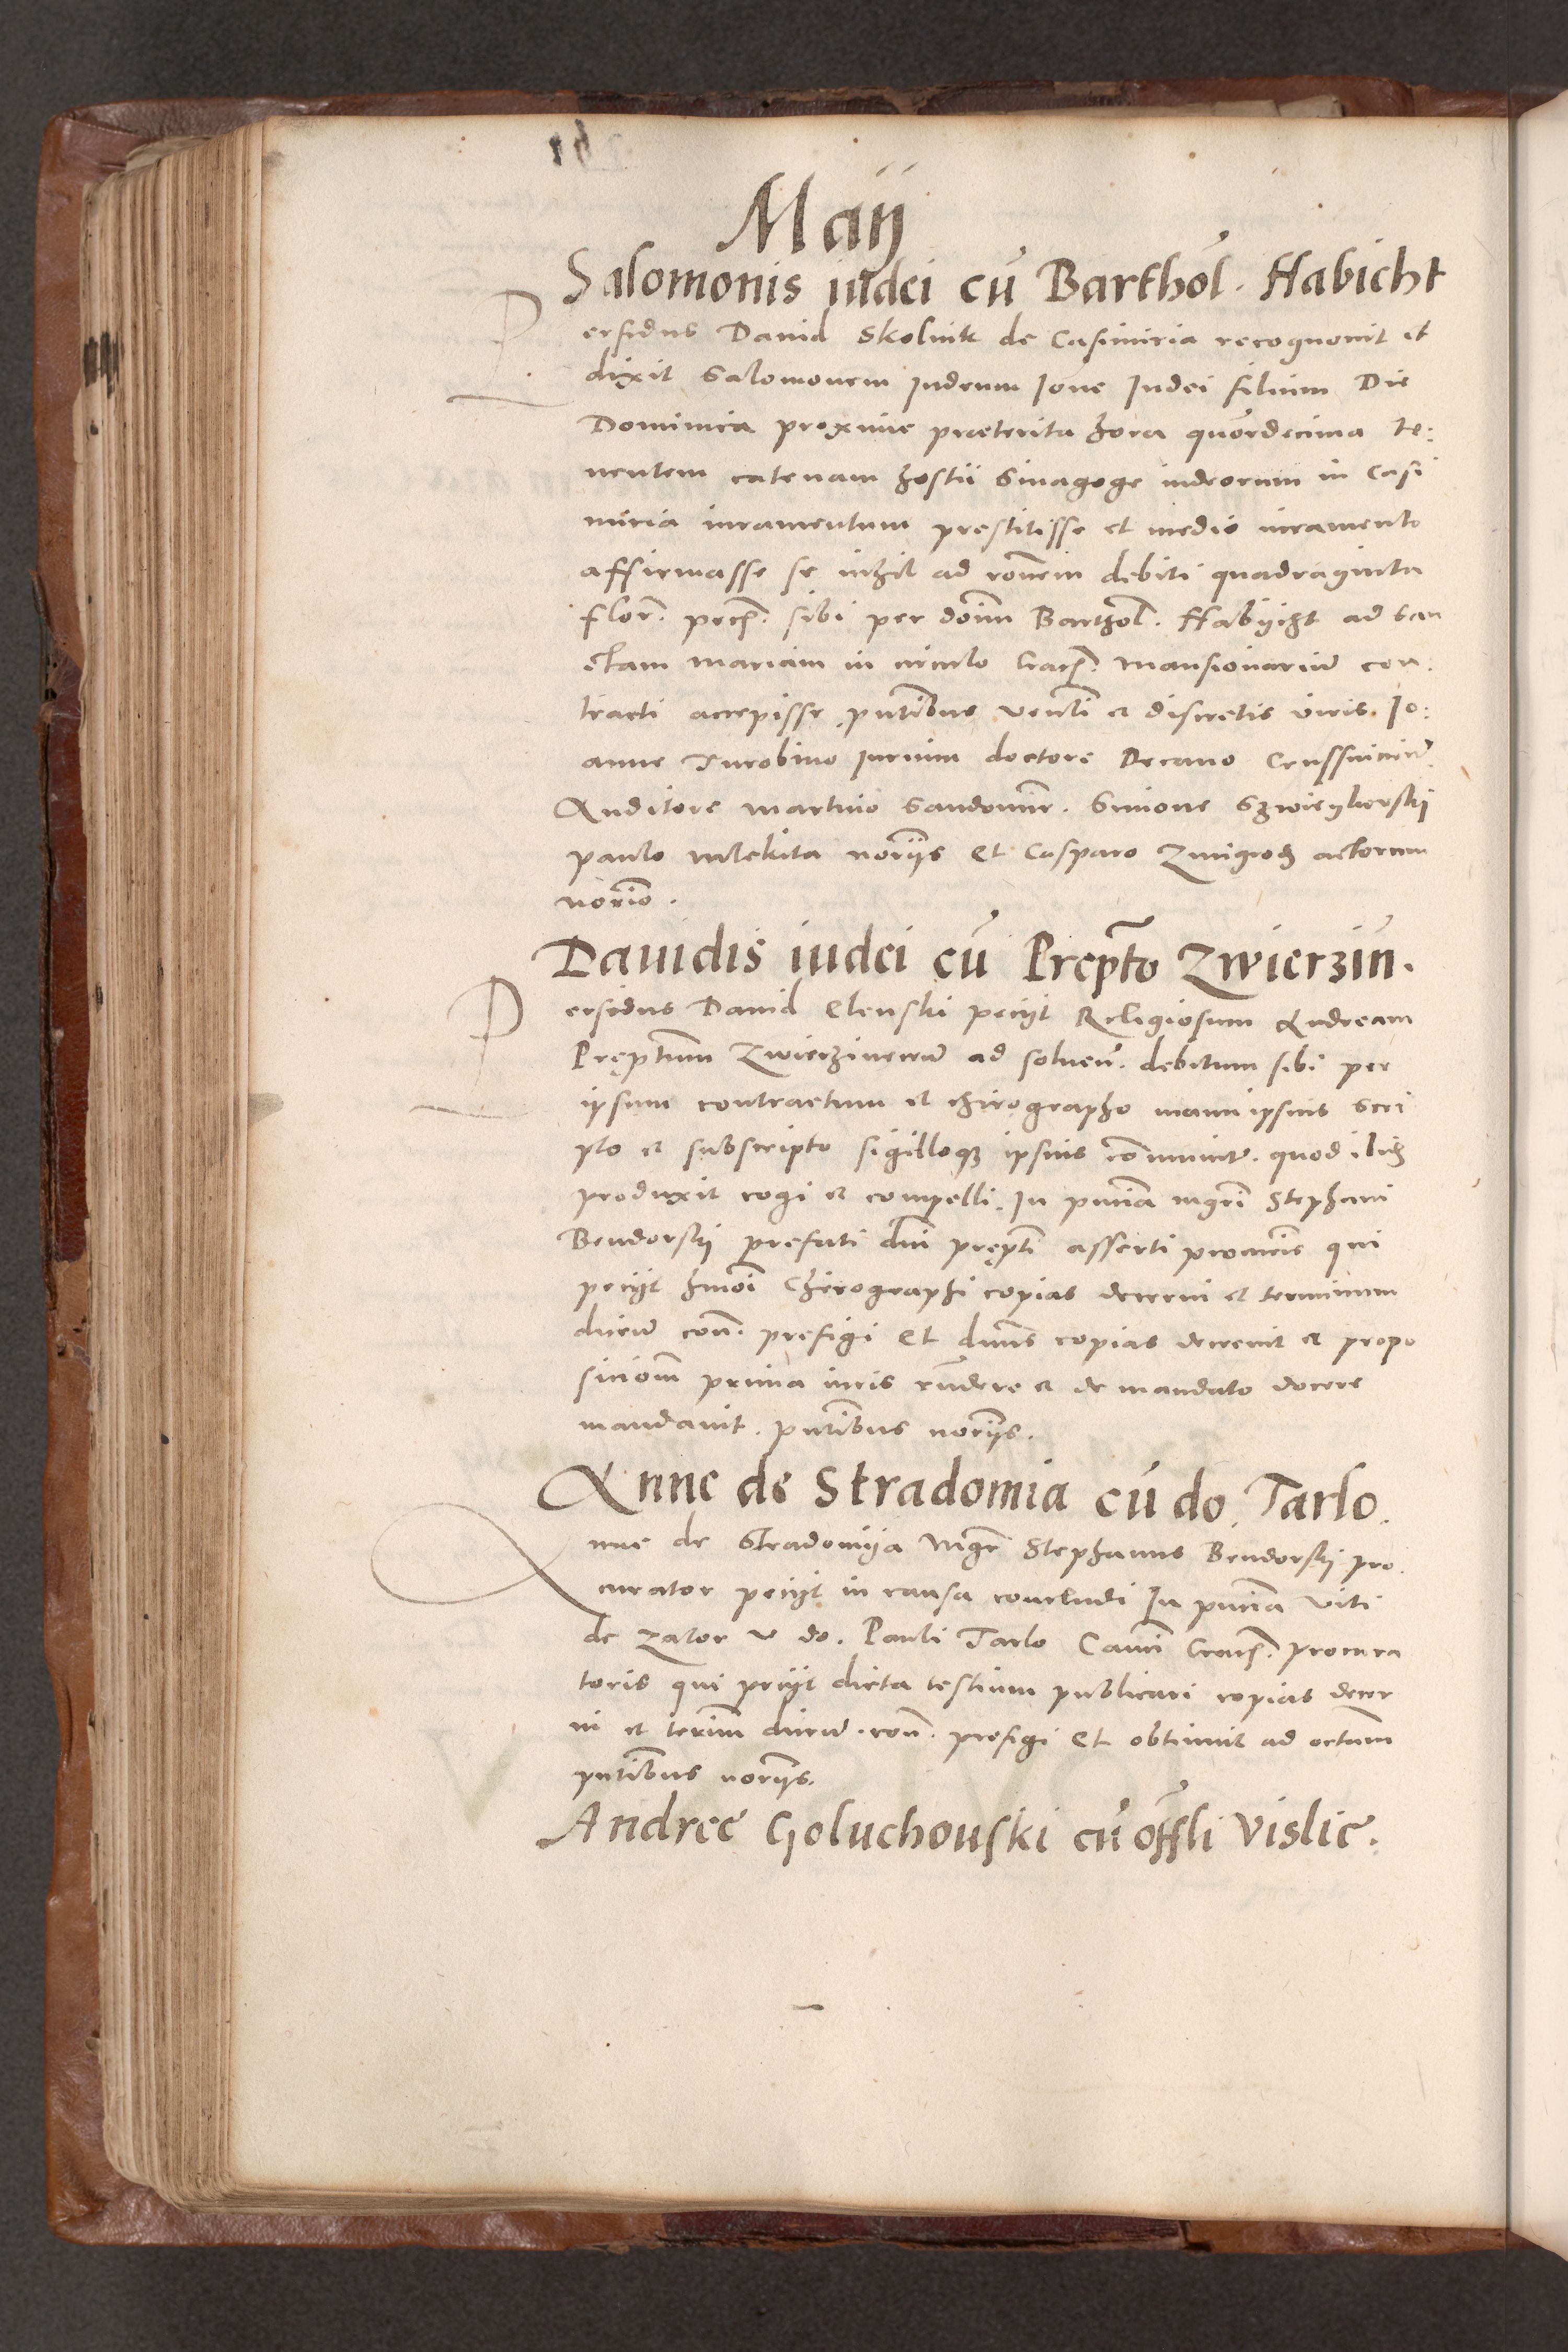 Maij
Salomonis iudei cū Barthol. Habicht
Perfidus David Skolnik de Casimiria recognovit et
dixit Salomonem Iudeum Ione Iudei filium Die
Dominica proxime praeterita hora quordecima te:
nentem catenam hostii Sinagoge iudeorum in Casi
miria iuramentum prestitisse et medio iuramento
affirmasse se nihil ad rōnem debiti quadraginta
flor. pech. sibi per dōim Barthol. Habijcht ad san
ctam mariam in circulo Crac. mansionariū con:
tracti accepisse pntibus Venli et discretis viris Io:
anne Turobino Iurium doctore Decano
Auditore Martino Sandomir. Simone
Paulo mlekita noriis Et Casparo actorum
norio.
Davidis iudei cū Prepto Zwierzin.
Perfidus David Clenski peciit Religiosum Andream
Preptum Zwierzinecen ad solven. debitum sibi per
ipsum contractum et chirographo manu ipsius scri
pto et subscripto sigilloq ipsius cōmunit. quod ibid
produxit cogi et compelli. In pntia mgri Stephani
Bendorskij prefati dni prepti asserti procuris qui
peciit hmoi Chirographi copias decerni et terminum
dicen con. prefigi Et dnus copias decrevit et propo
sicionm prima iuris rndere et de mandato docere
mandavit. pntibus noriis.
Anne de Stradomia cū do. Tarlo.
Anne de Stradomija Mgr Stephanus Bendorskij pro
curator peciit in causa concludi In pntia Viti
de Zator V do. Pauli Tarlo Canci Crac. procura
toris qui peciit dicta testium publicari copias decer
ni et termim dicen. con. prefigi Et obtinuit ad octam
pntibus noriis.
Andree Goluchouski cū offli Vislic.